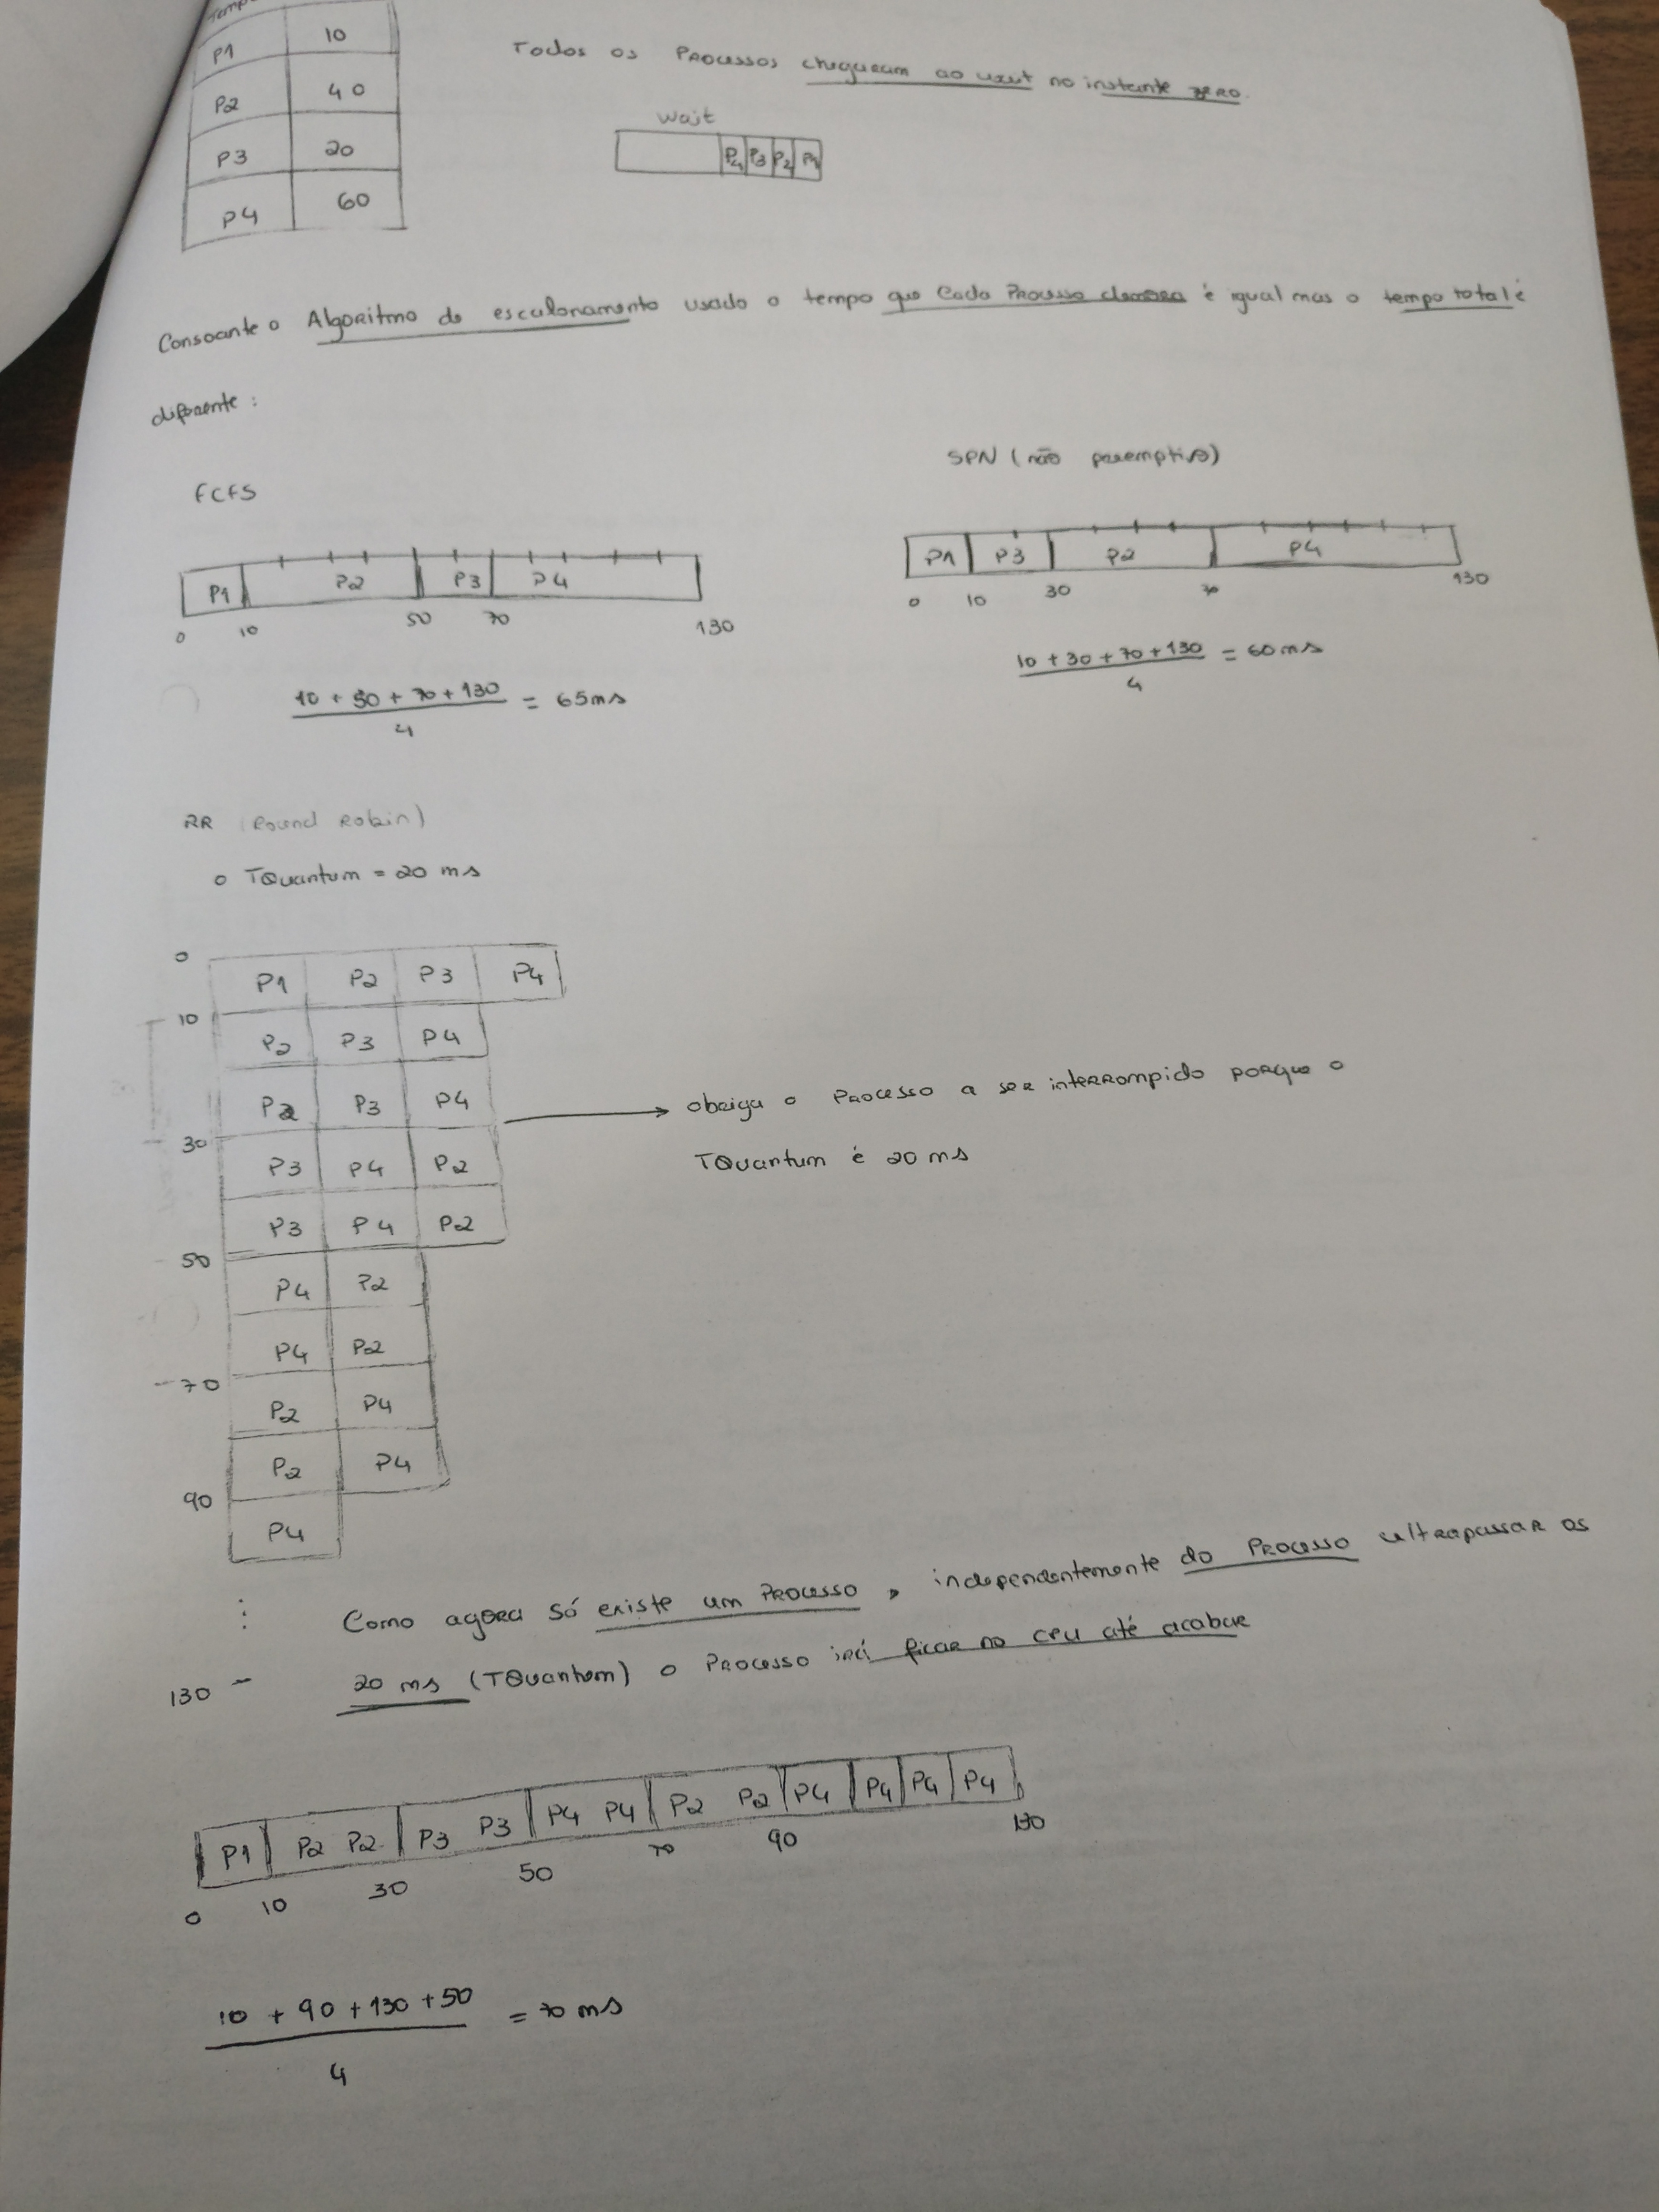 Temp
P1 10
P2 40
P3 20
P4 60
Todos os Processos chegaram ao wait no instante zero.
wait
P4 P3 P2 P1
Consoante o Algoritmo de escalonamento usado o tempo que cada Processo demora é igual mas o tempo total é
diferente :
FCFS
P1 P2 P3 P4
0 10 50 70 130
10 + 50 + 70 + 130
4
= 65ms
SPN (não preemptivo)
P1 P3 P2 P4
0 10 30 70 130
10 + 30 + 70 + 130
4
= 60ms
RR (Round Robin)
o TQuantum = 20 ms
0
P1 P2 P3 P4
10
P2 P3 P4
P2 P3 P4
30
P3 P4 P2
P3 P4 P2
50
P4 P2
P4 P2
70
P2 P4
P2 P4
90
P4
→ obriga o Processo a ser interrompido porque o
TQuantum é 20 ms
⋮ Como agora só existe um Processo, independentemente do Processo ultrapassar os
130 - 20 ms (TQuantum) o Processo irá ficar no cpu até acabar
P1 P2 P2 P3 P3 P4 P4 P2 P2 P4 P4 P4 P4
0 10 30 50 70 90 130
10 + 90 + 130 + 50
4
= 70 ms